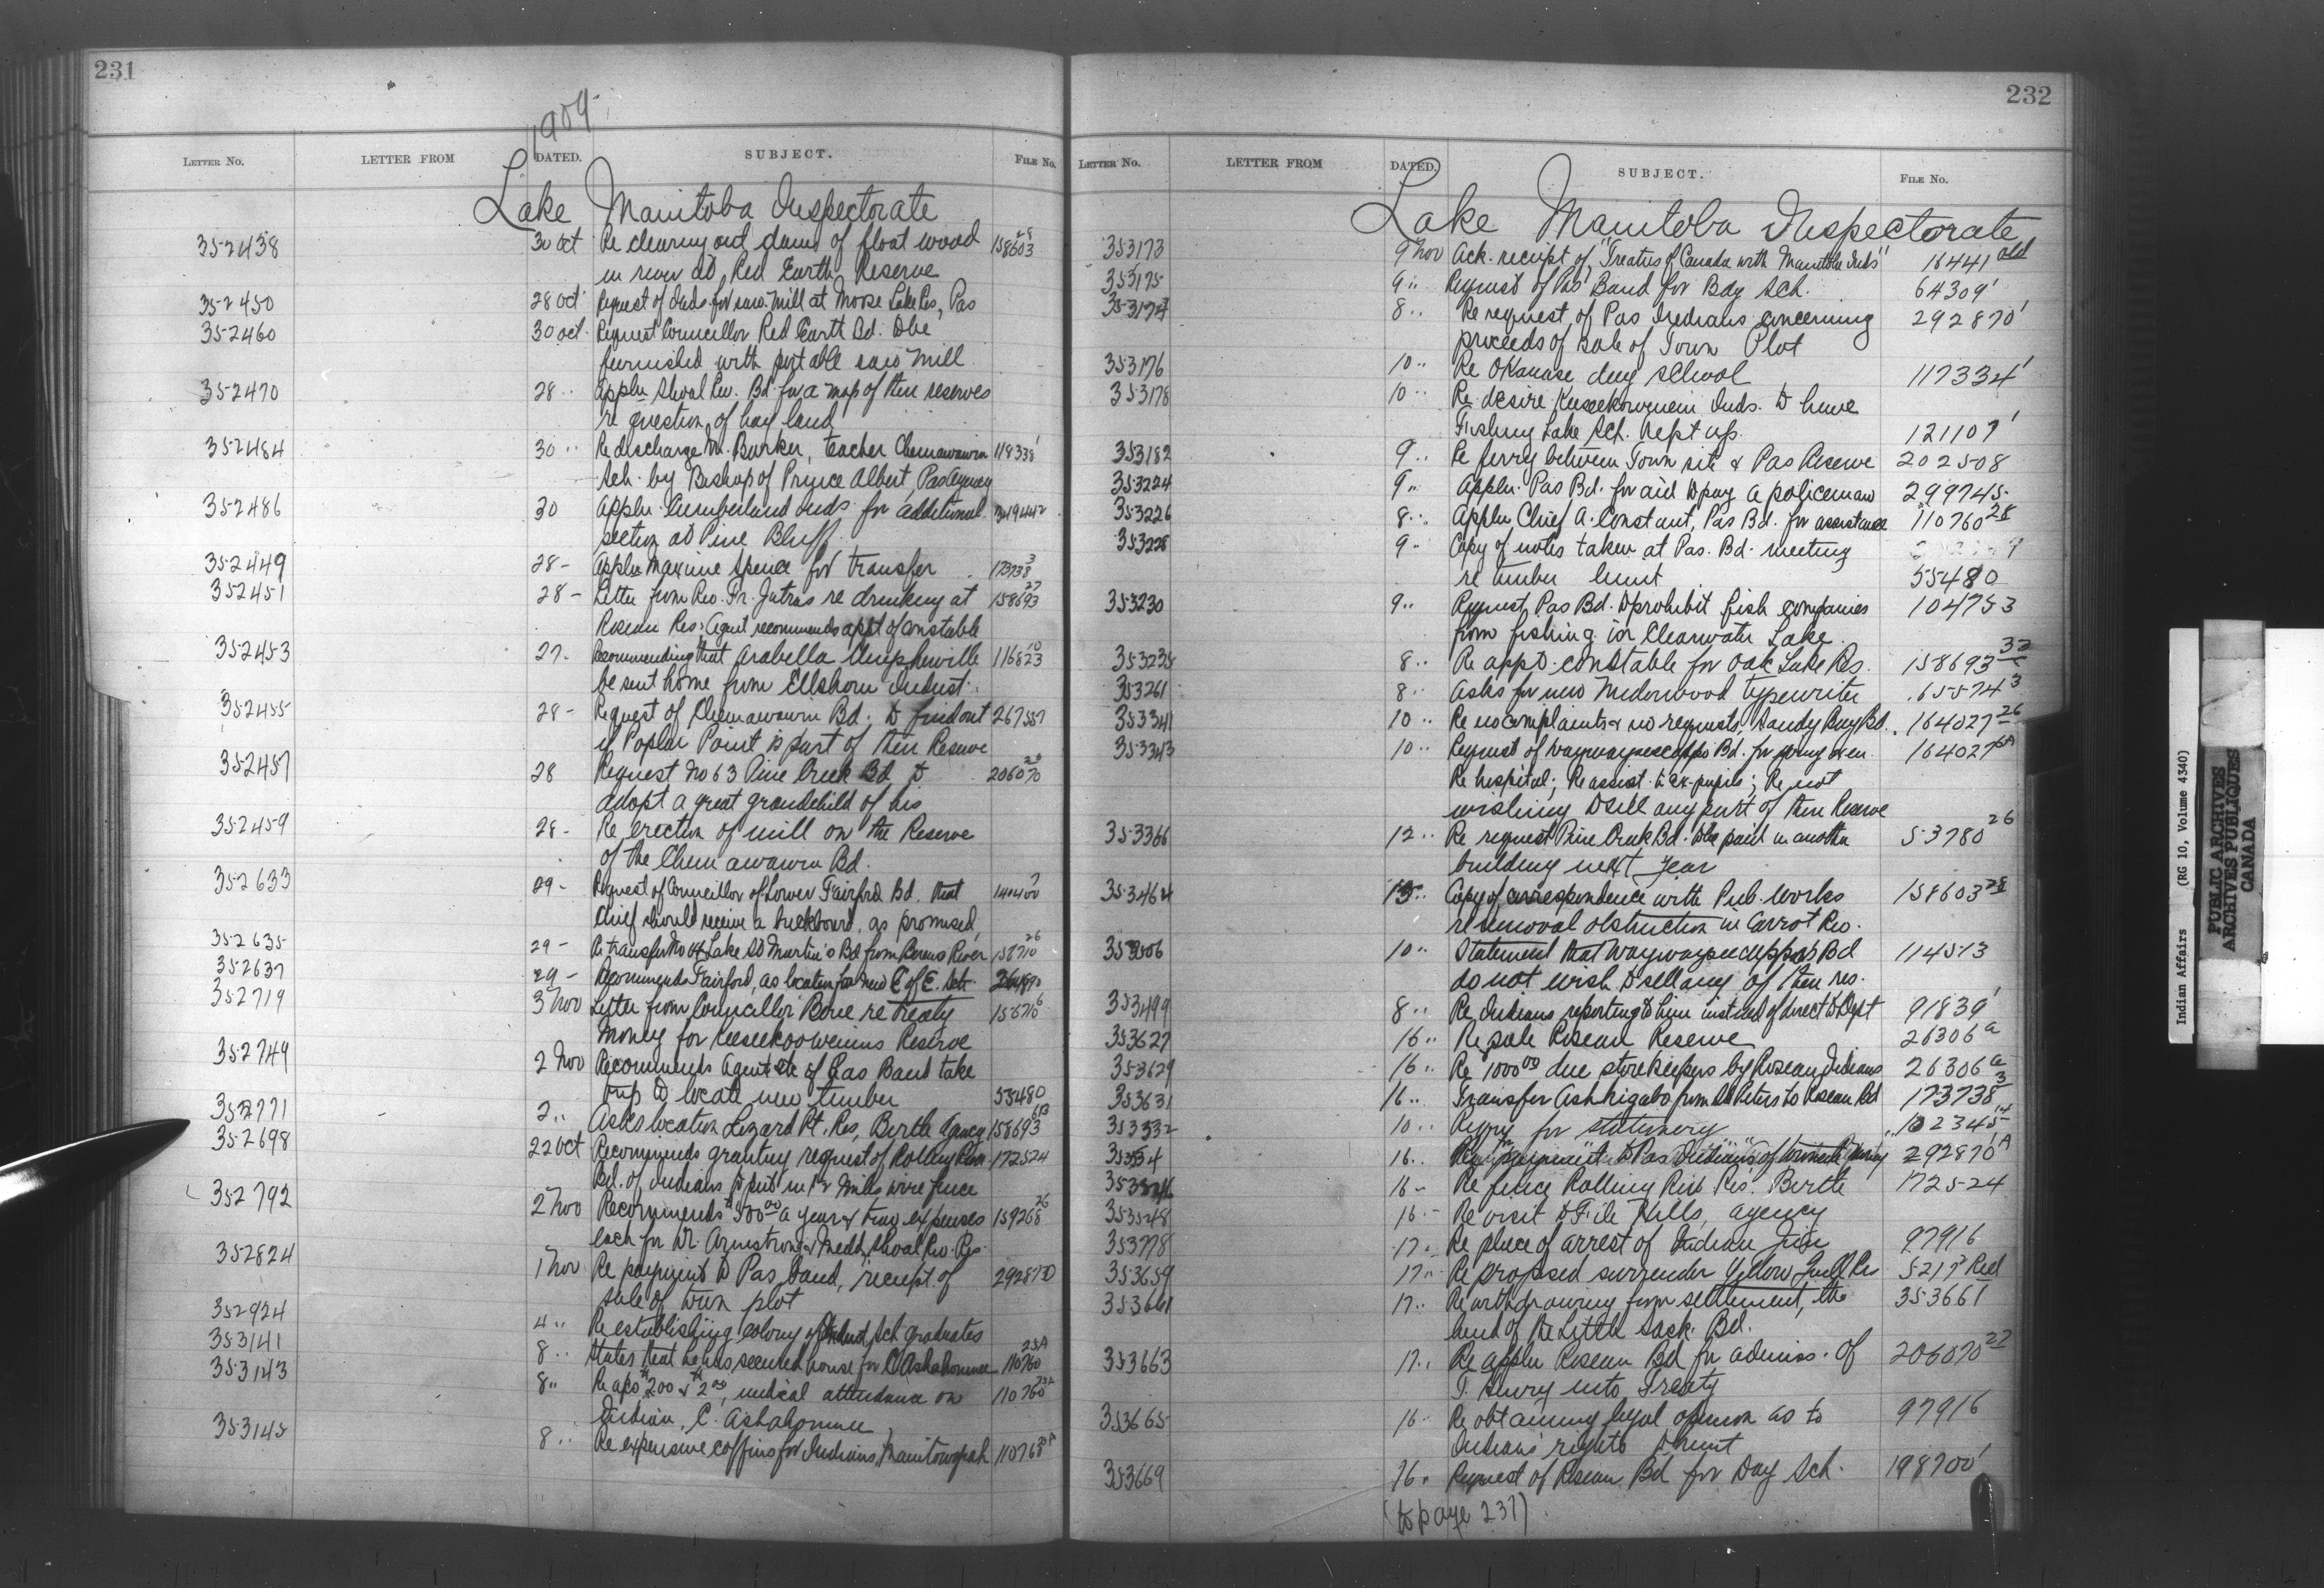 231
1909
LETTER No. LETTER FROM DATED. SUBJECT. FILE No.
Lake Manitoba Inspectorate
352438 30 Oct Re clearing out dams of float wood 158603 28
in river at Red Earth Reserve
352450 28 Oct Request of Inds. for saw-mill at Moose Lake Res, Pas
352460 30 Oct. Request Councillor Red Earth Bd. to be
furnished with portable saw mill
352470 28 " Appln Shoal Riv. Bd. for a map of their reserves
re question of hay land
352484 30 " Re discharge M. Burker, teacher Chemawawin 118338 1
Sch. by Bishop of Prince Albert, Pas Agency
352486 30 Appln Cumberland Inds for additional
section at Pine Bluff.
352449 28 - Appln Maxime Spence for transfer 173738 3
352451 28 - Letter from Rev. Fr. Jutras re drinking at 158693 27
Roseau Res: Agent recommends appt of constable
352453 27 - Recommending that Arabella 116823 10
be sent home from Elkhorn Indust.
352455 28 - Request of Chemawawin Bd. to find out 267557
if Poplar Point is part of their Reserve
352457 28 Request No 63 Pine Creek Bd to 206070 20
adopt a great grandchild of his
352459 28 - Re erection of mill on the Reserve
of the Chemawawin Bd.
352633 29 - Request of Councillor of Lower Fairford Bd. that
Chief should receive a buckboard, as promised
352635 29 - Re transfer No 44 Lake St Martin's Bd from Berens River 158710 26
352637 29 - Recommends Fairford, as location for new C of E. Sch
352719 3 Nov Letter from Councillor Bone re treaty 156716 6
Money for Keeseekoowenins Reserve
352749 2 Nov Recommends Agent etc of Pas Band take
trip to locate new timber 55480
352771 2 " Asks location Lizard Pt. Res, Birtle Agency 158693
352698 22 Oct Recommends granting request of Rolling River 172524
Bd. of Indians to put in 12 miles wire fence
352792 2 Nov Recommends $500.00 a year & trav expenses 159268 26
each for Dr. Armstrong & Medd, Shoal Riv. Res.
352824 1 Nov Re payment to Pas band, receipt of 292870
sale of town plot
352924 4 " Re establishing colony of Indust. Sch graduates
353141 8 " States that he has secured house for C Ashahonnee 110760 25A
353143 8 " Re a/cs $200 & $2.00, medical attendance on 110760 25A
Indian, C. Ashahonnee
353145 8 " Re expensive coffins for Indians, Manitowapah 110768
232
LETTER No. LETTER FROM DATED. SUBJECT. FILE No.
Lake Manitoba Inspectorate
353173 9 Nov Ack. receipt of "Treaties of Canada with Manitoba Inds" 16441 old
353175 9 " Request of Pas Band for Day Sch. 64309 1
353174 8 " Re request of Pas Indians concerning 292870 1
proceeds of sale of Town Plot
353176 10 " Re Okanase day school 117334 1
353178 10 " Re desire Keeseekowenin Inds. to have
Fishing Lake Sch. kept up. 121107 1
353182 9 " Re ferry between Town site & Pas Reserve 202508
353224 9 " Appln. Pas Bd. for aid to pay a policeman 299745
353226 8 " Appln Chief A. Constant, Pas Bd. for assistance 110760 28
353228 9 " Copy of notes taken at Pas. Bd. meeting
re timber limit 55480
353230 9 " Request Pas Bd. to prohibit fish companies 104753
from fishing in Clearwater Lake
353235 8 " Re appt. constable for Oak Lake Res. 158693 32
353261 8 " Asks for new Underwood typewriter 65574 3
353341 10 " Re no complaints & no requests, Sandy Bay Bd. 164027 26
353343 10 " Request of Waywayseecappo Bd. for young oxen 164027 6A
Re hospital; Re assist. to ex-pupils; Re not
wishing to sell any part of their Reserve
353366 12 " Re request Pine Creek Bd. to be paid in another 53780 26
building next year
353464 15 " Copy of correspondence with Pub. Works 158603 28
re removal obstruction in Carrot Riv.
353506 10 " Statement that Waywayseecappos Bd 114513
do not wish to sell any of their res.
353499 8 " Re Indians reporting to him instead of direct to Dept 91839 1
353627 16 " Re sale Roseau Reserve 26306 a
353629 16 " Re $1000.00 due storekeepers by Roseau Indians 26306 a
353631 16 " Transfer Ashkigabo from St Peters to Roseau Bd 173738 3
353532 10 " Reqn for stationery 102345 14
353534 16 " Re payment to Pas Indians of 292870 1A
16 - Re fence Rolling Riv. Res. Birtle 172524
353548 16 - Re visit to File Hills, agency
353778 17 " Re place of arrest of Indian Jim 97916
353659 17 " Re proposed surrender Yellow Quill Res 5217 Red
353661 17 " Re withdrawing from settlement, the 353661
land of the Little Sask. Bd.
353663 17 " Re appln Roseau Bd for admiss. of 206070 22
T. Henry into Treaty
353665 16 " Re obtaining legal opinion as to 97916
Indians' rights to hunt
353669 16 " Request of Roseau Bd for Day Sch. 198700 1
(to page 237)
Indian Affairs (RG 10, Volume 4340)
PUBLIC ARCHIVES
ARCHIVES PUBLIQUES
CANADA